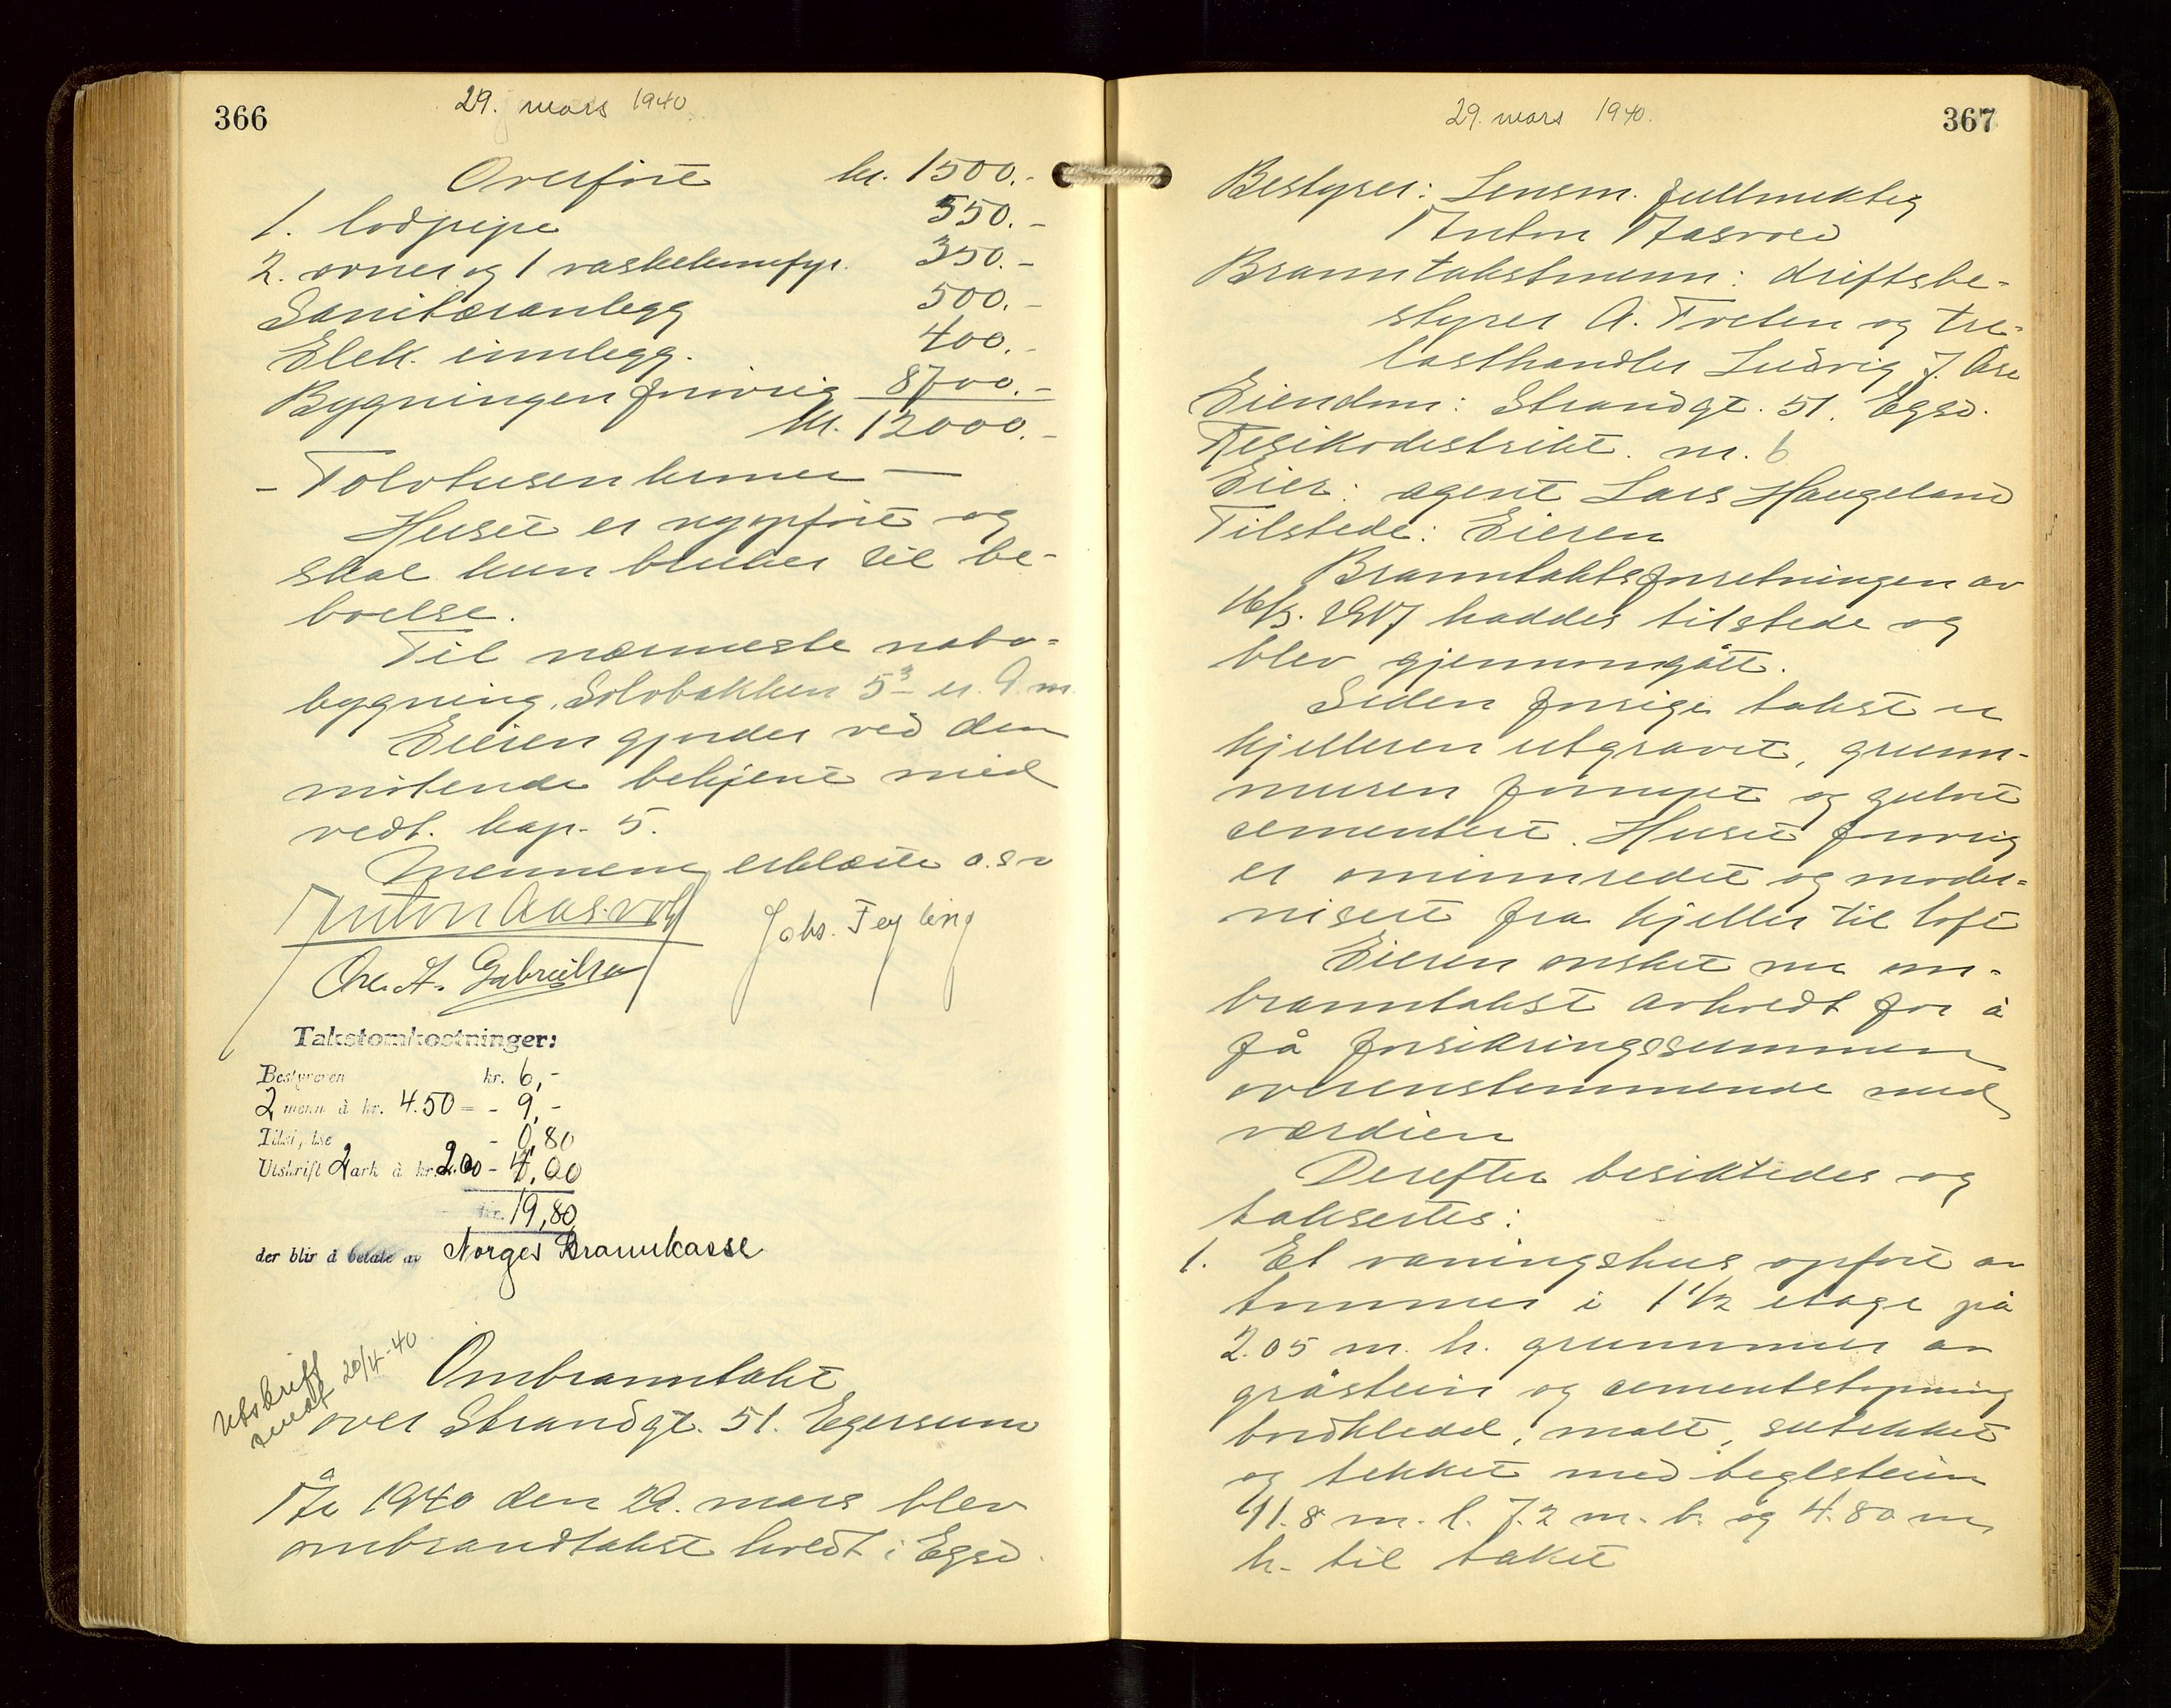 366
29. mars 1940
Overført kr. 1500.-
1. lodpipe 550.-
2. ovner og 1 vaskekumefyr. 350.-
Sanitæranlegg 500.-
Elek. innlegg. 400.-
Bygningen forøvrig 8700.-
kr. 12000.-
- Tolvtusen kroner -
Huset er nyopført og
skal kun brukes til be-
boelse.
Til nærmeste nabo-
bygning, Solobakken 5³ er 9 m.
Eieren gjordes ved den
møtende bekjent med
vedt. kap. 5.
Mennene erklærte o.s.v
Anton Aasvold
Johs. Feyling
Ole A. Gabrielsen
Takstomkostninger:
Bestyreren kr. 6,-
2 menn à kr. 4.50 = - 9,-
Tilsigelse - 0,80
Utskrift 2 ark à kr. 2.00 - 4,00
kr. 19,80
der blir å betale av Norges Brannkasse
Utskrift
sendt 20/4-40
Ombranntakst
over Strandgt. 51. Egersund
År 1940 den 29. mars blev
ombrandtakst holdt i Egsd.
29. mars 1940.
367
Bestyrer: Lensm. fullmektig
Anton Aasvold
Branntakstmenn: driftsbe-
styrer A. Tveten og tre-
lasthandler Ludvig J. Åse
Eiendom: Strandgt. 51. Egsd.
Resikodestrikt. nr. 6
Eier: agent Lars Haugeland
Tilstede: Eieren
Branntakstsforretningen av
16/3. 1917 haddes tilstede og
blev gjennomgått.
Siden forrige takst er
kjelleren utgravet, grunn-
muren forøyet og gulvet
sementert. Huset forøvrig
er ominnredet og moder-
nisert fra kjeller til loft
Eieren ønsket nu om-
branntakst avholdt for å
få forsikringssummen
overenstemmende med
værdien
Derefter besiktedes og
taksertes:
1. Et våningshus opført av
tømmer i 1 1/2 etage på
2.05 m. h. grunnmur av
gråstein og sementstøpning
bordkledd, malt, sutekket
og tekket med teglstein
11.8 m. l. 7.2 m. b. og 4.80 m
h. til taket